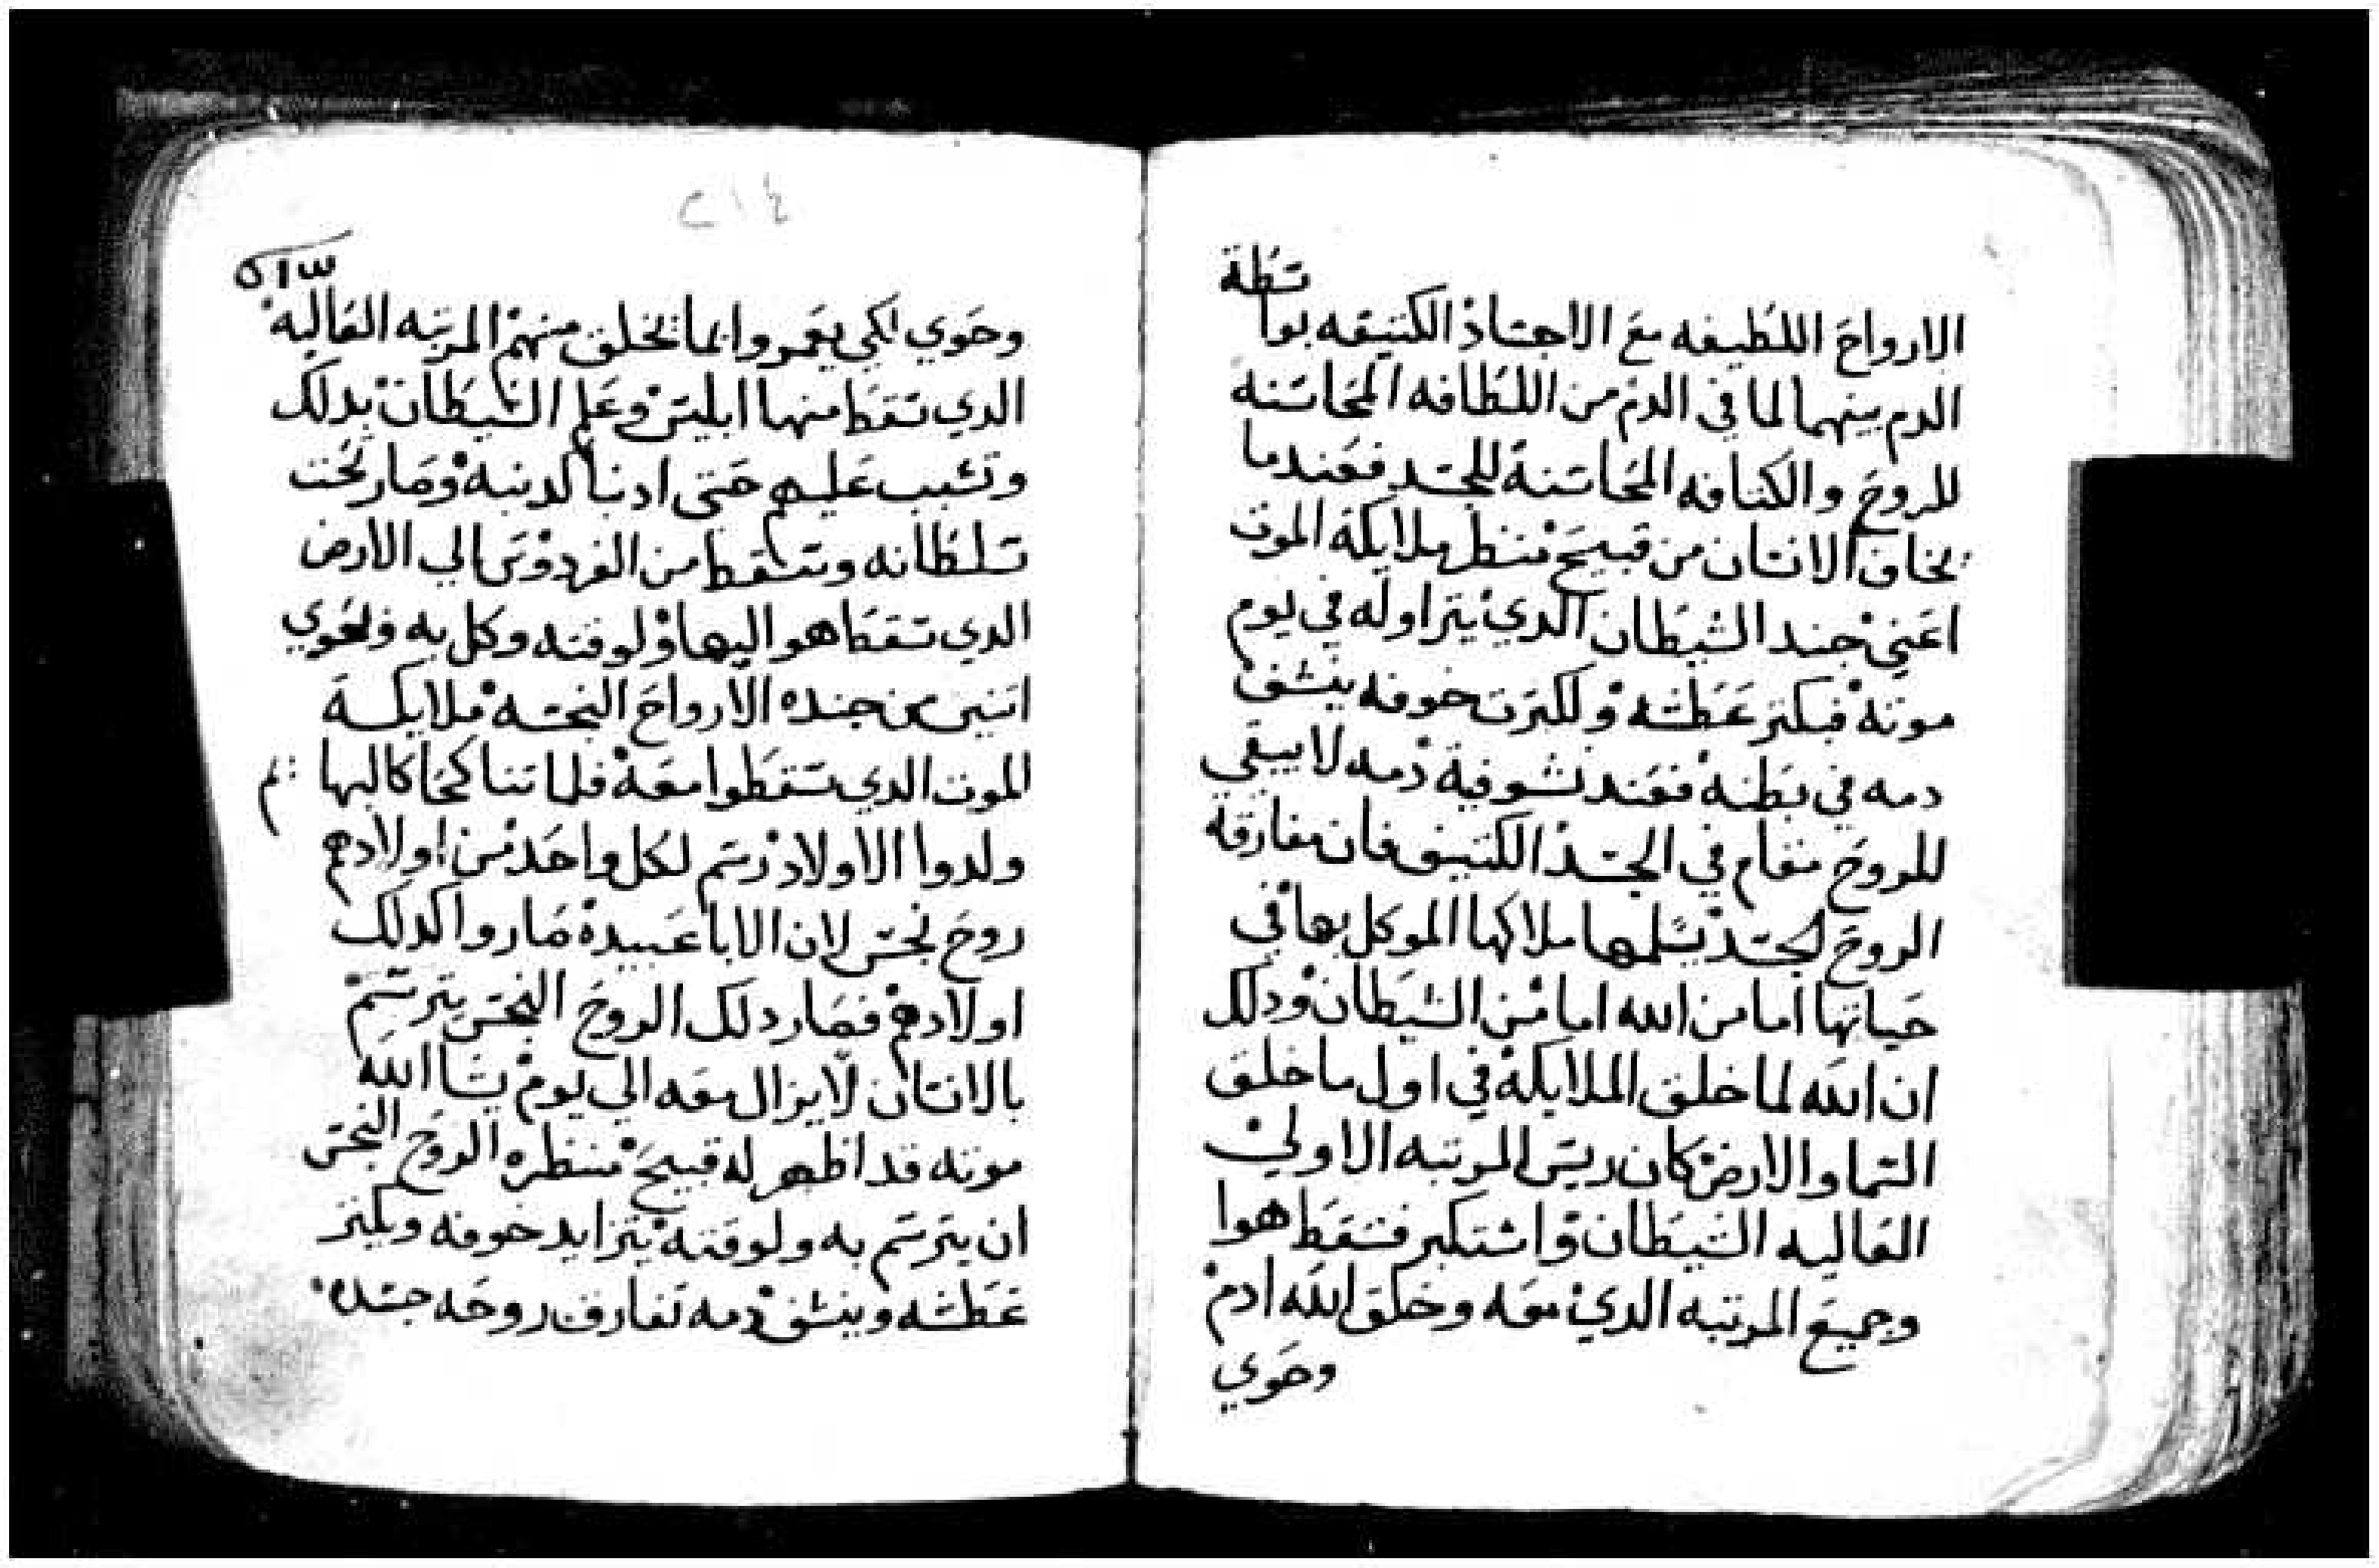 الارواح اللطيفه مع الاجساد الكتيفه بوا
سطة
الدم بينهما لما في الدم من اللطافه المجانسه
للروح والكتافه المجانسة للجسد فعندما
يخاف الانسان من قبيح منظر ملايكة الموت
اعني جند الشيطان الدي يتراوله في يوم
موته فيكتر عطشه ولكترت خوفه ينشف
دمه في بطنه فعند نشوفية دمه لا يبقي
للروح مقام في الجسد الكتيف فان مفارقة
الروح لجسد يسلمها ملاكها الموكل بها في
حياتها اما من الله اما من الشيطان ودلك
ان الله لما خلق الملايكة في اول ما خلق
السما والارض كان ريس المرتبه الاولي
العاليه الشيطان واستكبر فسقط هوا
وجميع المرتبه الدي معه وخلق الله ادم
وحوي
٢١٤
وحوي لكي يعمروا بما يخلق منهم المرتبه العاليه
الدي سقط منها ابليس وعلم الشيطان بدلك
وتسبب عليهم حتي ادنبا الدنبه وصار تحت
سلطانه وتسقط من الفردوس الي الارض
الدي سقط هو اليها ولوقته وكل به وبحوي
اتنين من جنده الارواح النجسه ملايكة
الموت الدي سقطوا معه فلما تناكحا كاليها يم
ولدوا الاولاد رسم لكل واحد من اولادهم
روح نجس لان الابا عبيده صاروا كدلك
اولادهم فصار دلك الروح النجس يترسم
بالانسان لا يزال معه الي يوم يشا الله
موته قد اظهر له قبيح منظره الروح النجس
ان يترسم به ولوقته يتزايد خوفه ويكتر
عطشه وينشف دمه تفارق روحه جسده